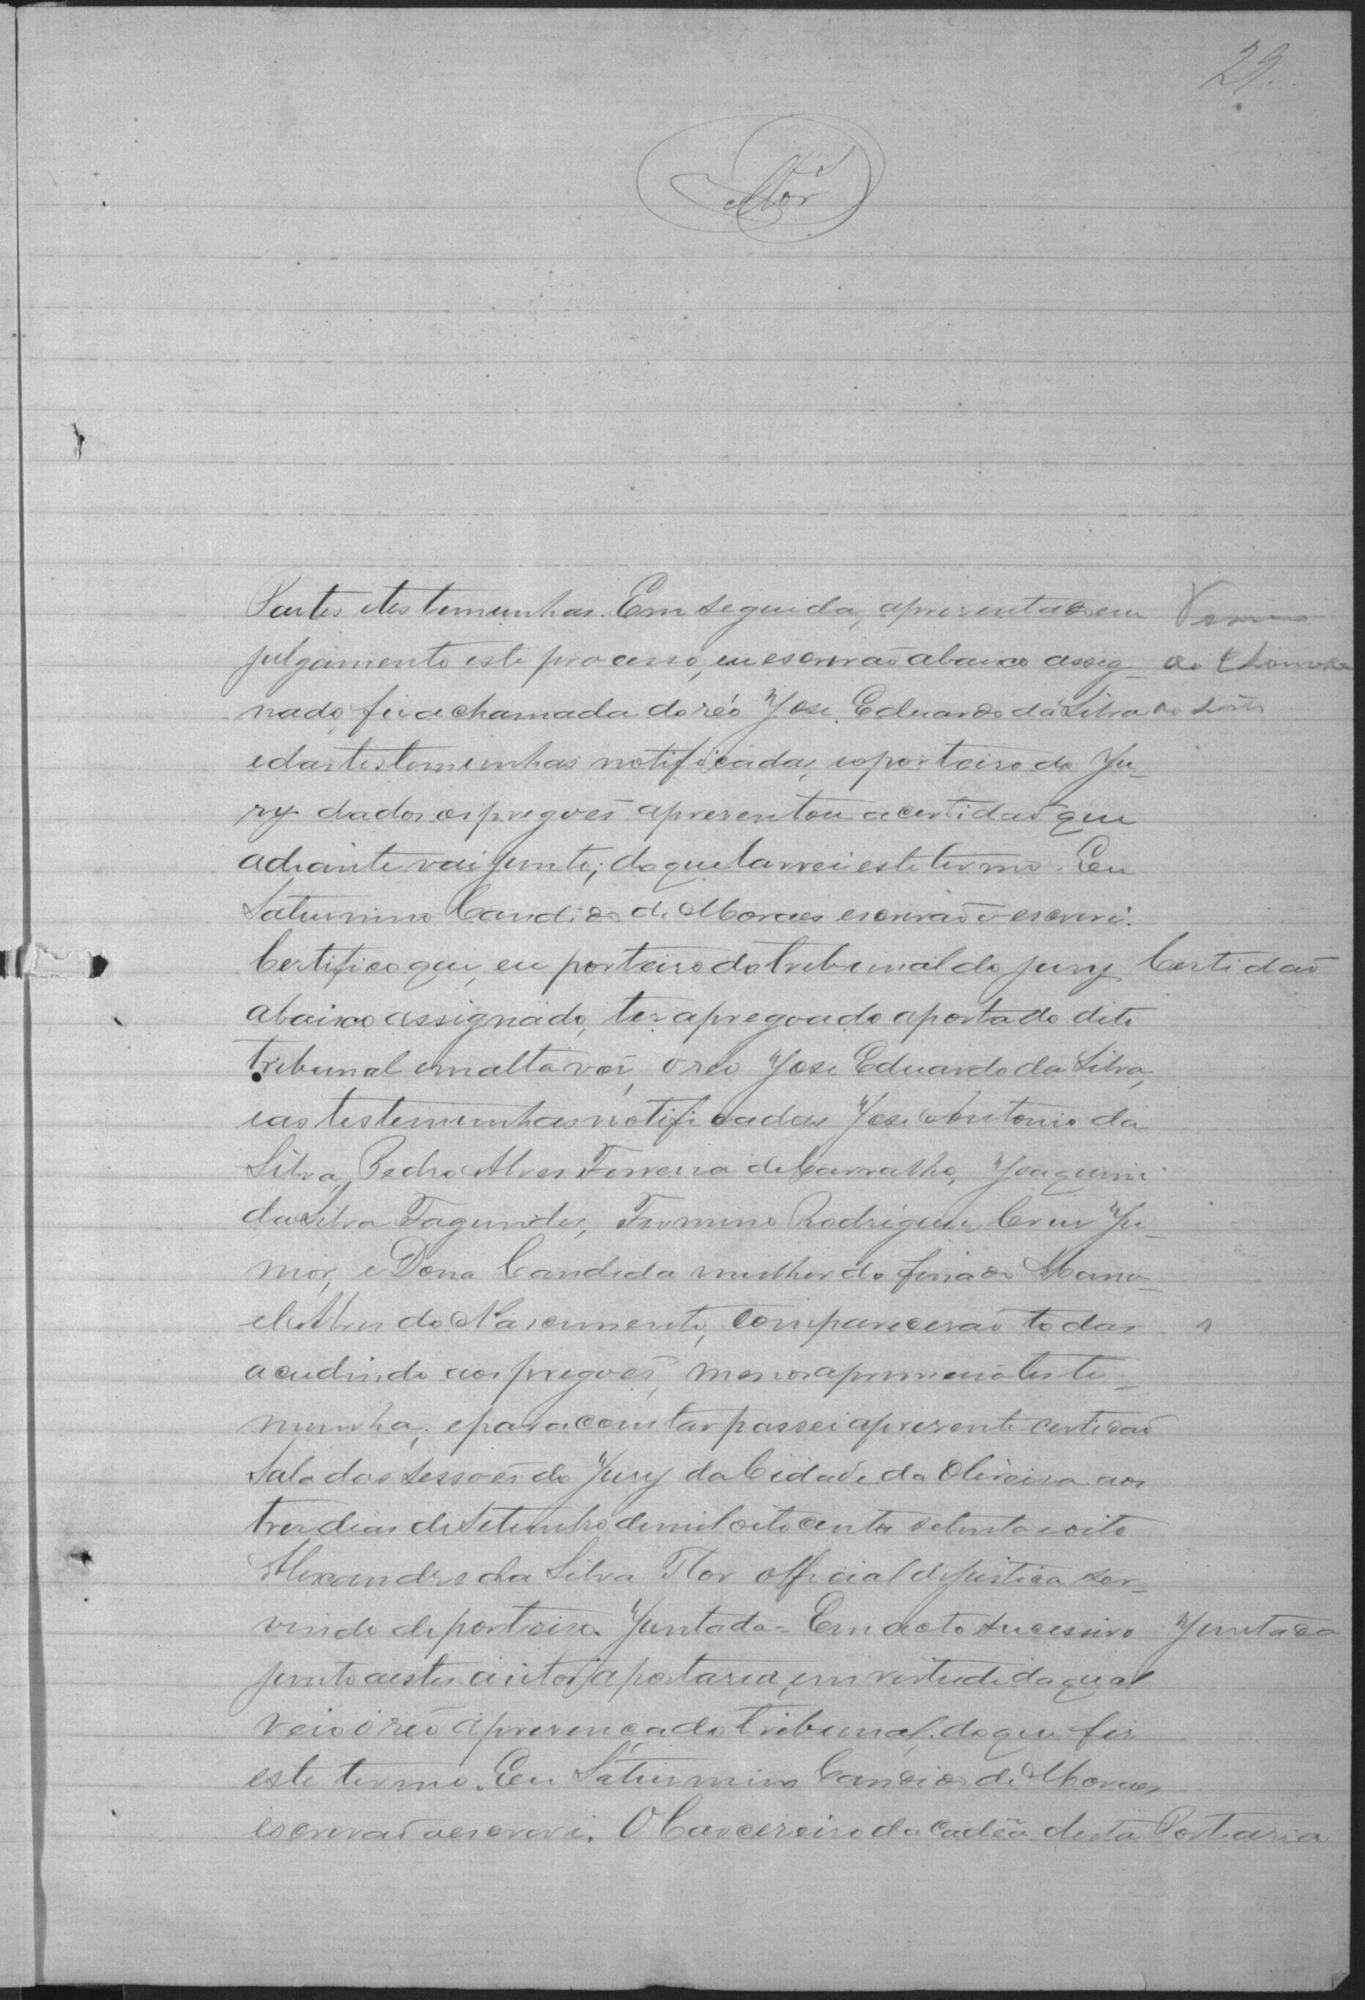 29.
Flor
Partes e testemunhas. Em seguida, apresentado em
julgamento este processo, eu escrivão abaixo assig-
nado, fis a chamada do réo José Eduardo da Silva
e das testemunhas notificadas, e o porteiro do Ju-
ry dados os pregoẽs apresentou a certidaõ que
adiante vai junto; do que lavrei este termo. Eu
Saturnino Candido de Moraes escrivaõ o escrevi.
Certifico que, eu porteiro do tribunal do jury Certidaõ
abaixo assignado, ter apregoado a porta do dito
tribunal em alta voz, o réo José Eduardo da Silva,
e as testemunhas notificadas José Antonio da
Silva, Pedro Alves Ferreira de Carvalho, Joaquim
da Silva Fagundes, Firmino Rodrigues Cruz Ju-
nior, e Dona Candida mulher do finado Mano-
el Alves do Nascimento, comparecerão todas
acudindo aos pregoẽs, menos a primeira teste-
munha; e para constar passei a presente certidaõ
Sala das Sessoẽs do Jury da Cidade da Oliveira aos
tres dias de Setembro de mil oito centos setenta e oito
Alexandre da Silva Flor official de justiça ser-
vindo de porteiro. Juntada = Em acto sucessivo Juntada
junto a estes autos a portaria, em virtude da qual
veio o reo á presença do tribunal, do que fis
este termo. Eu Saturnino Candido de Moraes
escrivaõ o escrevi. O Carcereiro da cadêa desta Portaria